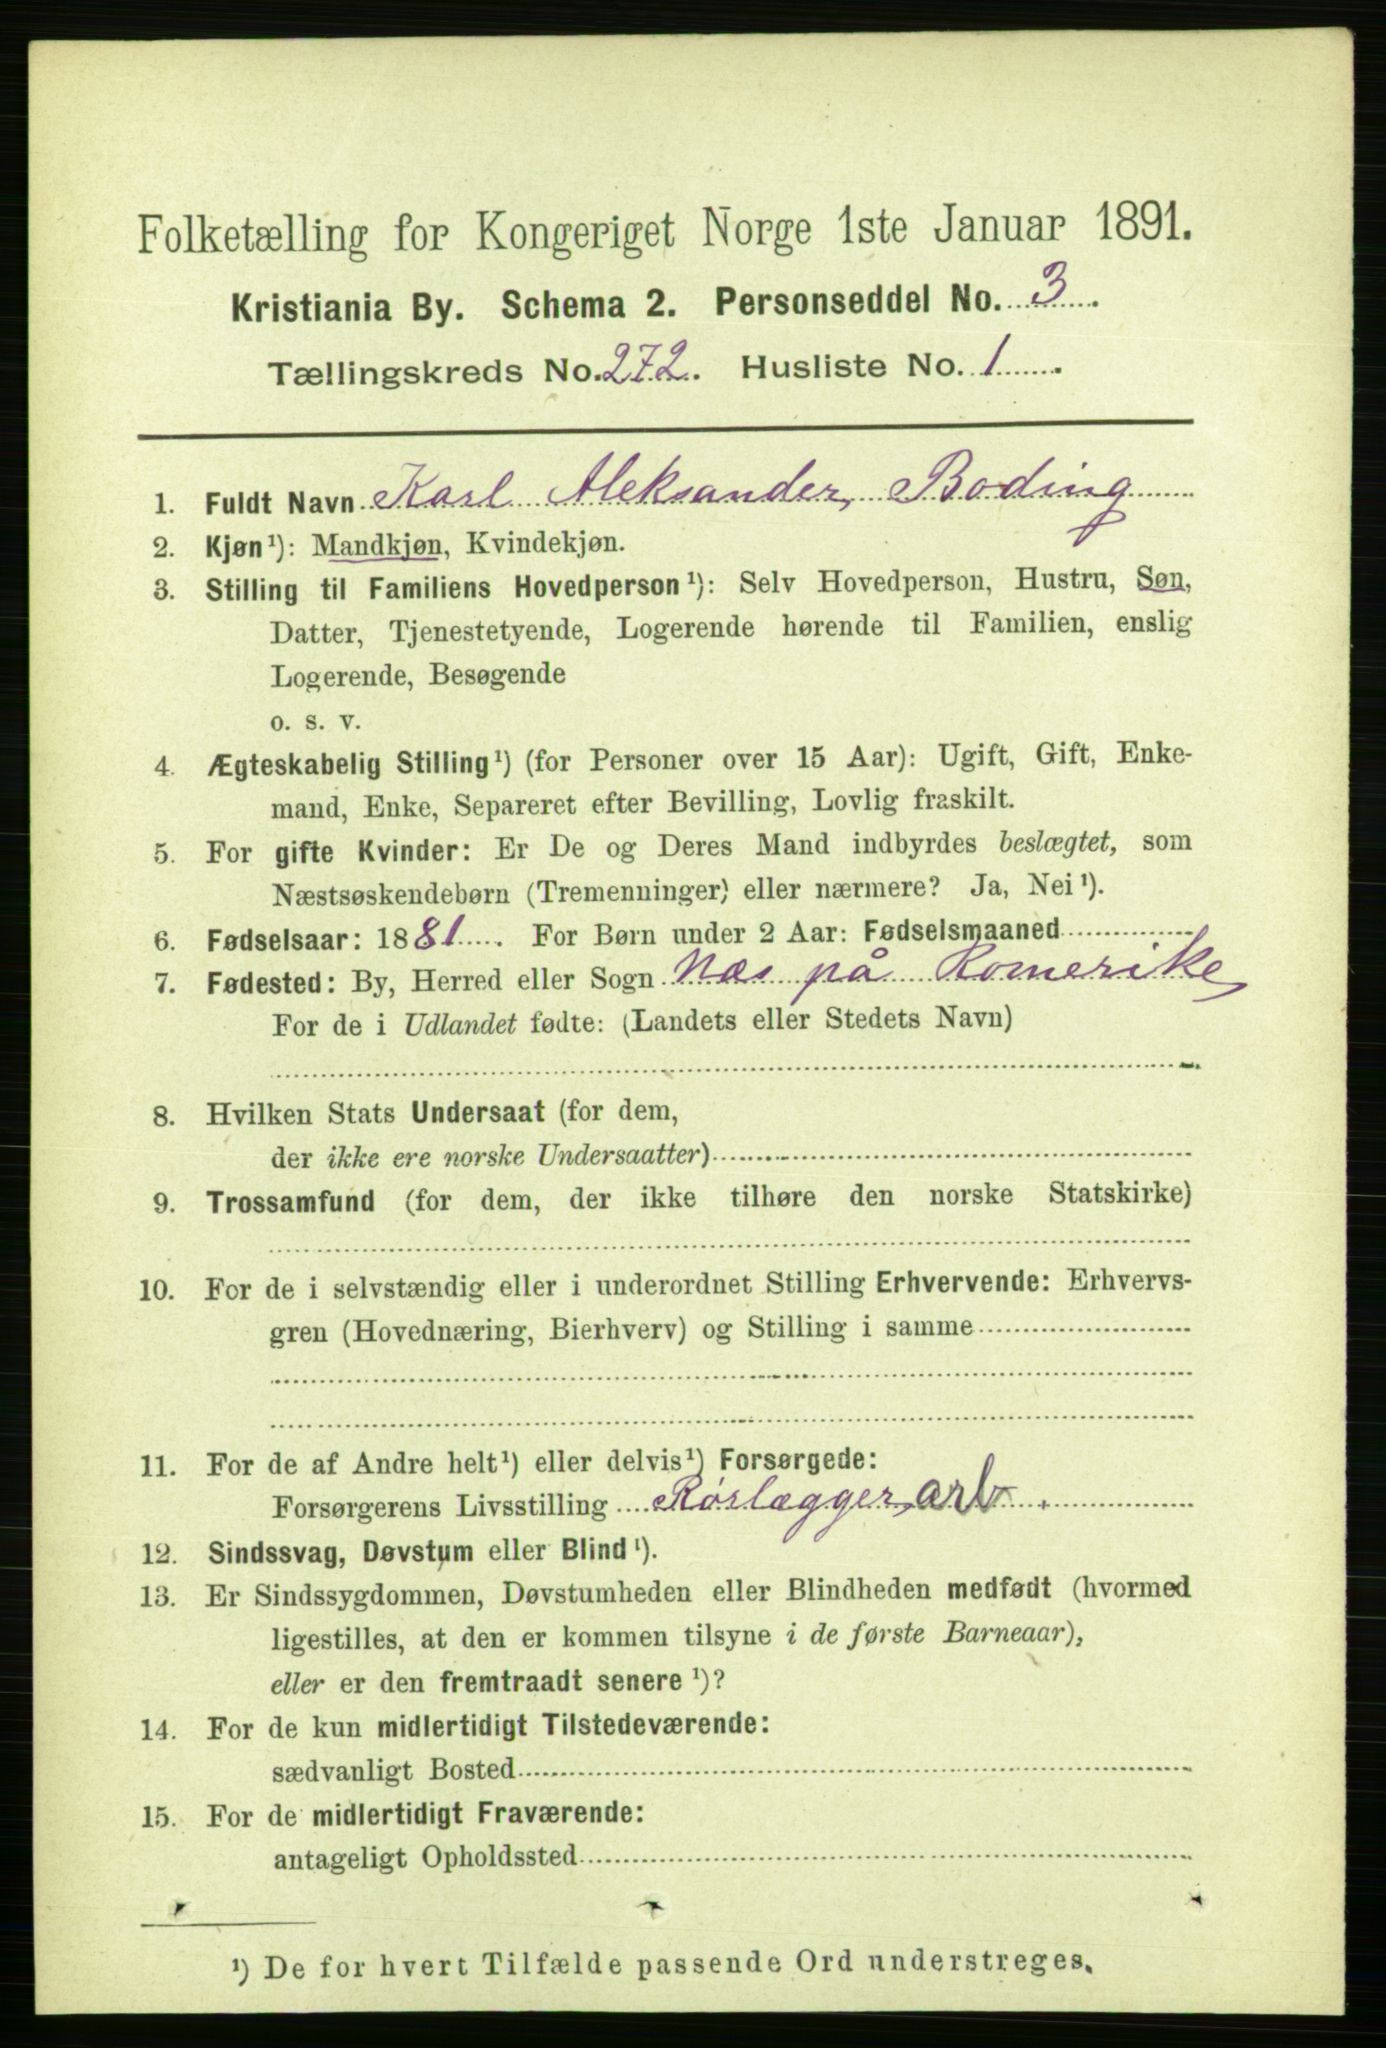 Folketælling for Kongeriget Norge 1ste Januar 1891.
Kristiania By. Schema 2. Personseddel No. 3.
Tællingskreds No. 272. Husliste No. 1.
1. Fuldt Navn Karl Aleksander Boding
2. Kjøn¹): Mandkjøn, Kvindekjøn.
3. Stilling til Familiens Hovedperson¹): Selv Hovedperson, Hustru, Søn,
Datter, Tjenestetyende, Logerende hørende til Familien, enslig
Logerende, Besøgende
o. s. v.
4. Ægteskabelig Stilling¹) (for Personer over 15 Aar): Ugift, Gift, Enke-
mand, Enke, Separeret efter Bevilling, Lovlig fraskilt.
5. For gifte Kvinder: Er De og Deres Mand indbyrdes beslægtet, som
Næstsøskendebørn (Tremenninger) eller nærmere? Ja, Nei¹).
6. Fødselsaar: 1881. For Børn under 2 Aar: Fødselsmaaned
7. Fødested: By, Herred eller Sogn Næs på Romerike
For de i Udlandet fødte: (Landets eller Stedets Navn)
8. Hvilken Stats Undersaat (for dem,
der ikke ere norske Undersaatter)
9. Trossamfund (for dem, der ikke tilhøre den norske Statskirke)
10. For de i selvstændig eller i underordnet Stilling Erhvervende: Erhvervs-
gren (Hovednæring, Bierhverv) og Stilling i samme
11. For de af Andre helt¹) eller delvis¹) Forsørgede:
Forsørgerens Livsstilling Rørlægger, arb.
12. Sindssvag, Døvstum eller Blind¹).
13. Er Sindssygdommen, Døvstumheden eller Blindheden medfødt (hvormed
ligestilles, at den er kommen tilsyne i de første Barneaar),
eller er den fremtraadt senere¹)?
14. For de kun midlertidigt Tilstedeværende:
sædvanligt Bosted
15. For de midlertidigt Fraværende:
antageligt Opholdssted
¹) De for hvert Tilfælde passende Ord understreges.